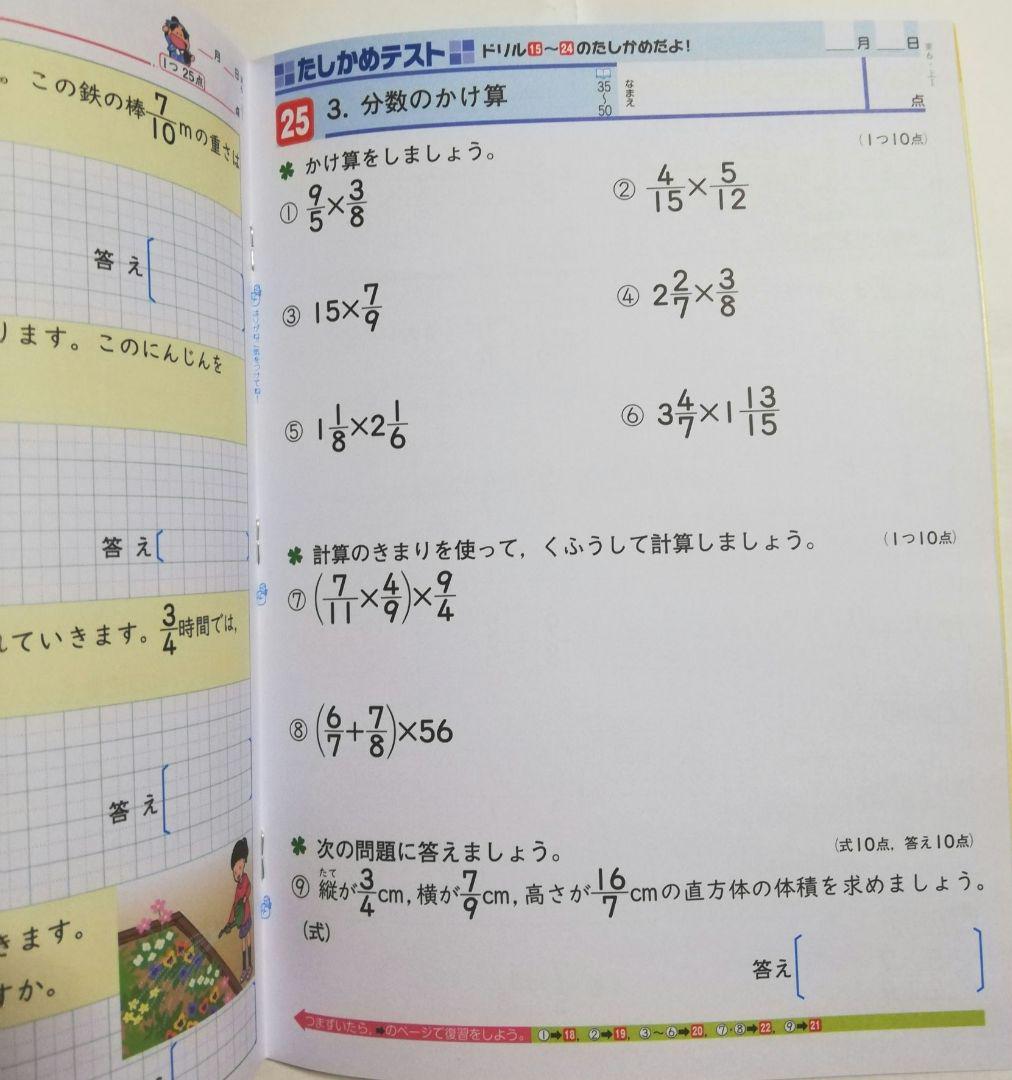 月 日
1つ25点
点
。この鉄の棒7/10mの重さは
答え
ります。このにんじんを
答え
れていきます。3/4時間では,
答え
きます。
すか。
たしかめテスト ドリル15~24のたしかめだよ! 月 日
25 3. 分数のかけ算 35~50 なまえ 点
かけ算をしましょう。 (1つ10点)
① 9/5×3/8 ② 4/15×5/12
③ 15×7/9 ④ 2 2/7×3/8
⑤ 1 1/8×2 1/6 ⑥ 3 4/7×1 13/15
計算のきまりを使って,くふうして計算しましょう。 (1つ10点)
⑦ (7/11×4/9)×9/4
⑧ (6/7+7/8)×56
次の問題に答えましょう。 (式10点,答え10点)
⑨ 縦(たて)が3/4cm,横が7/9cm,高さが16/7cmの直方体の体積を求めましょう。
(式)
答え
つまずいたら,➡のページで復習をしよう。 ①➡18, ②➡19, ③~⑥➡20, ⑦・⑧➡22, ⑨➡21